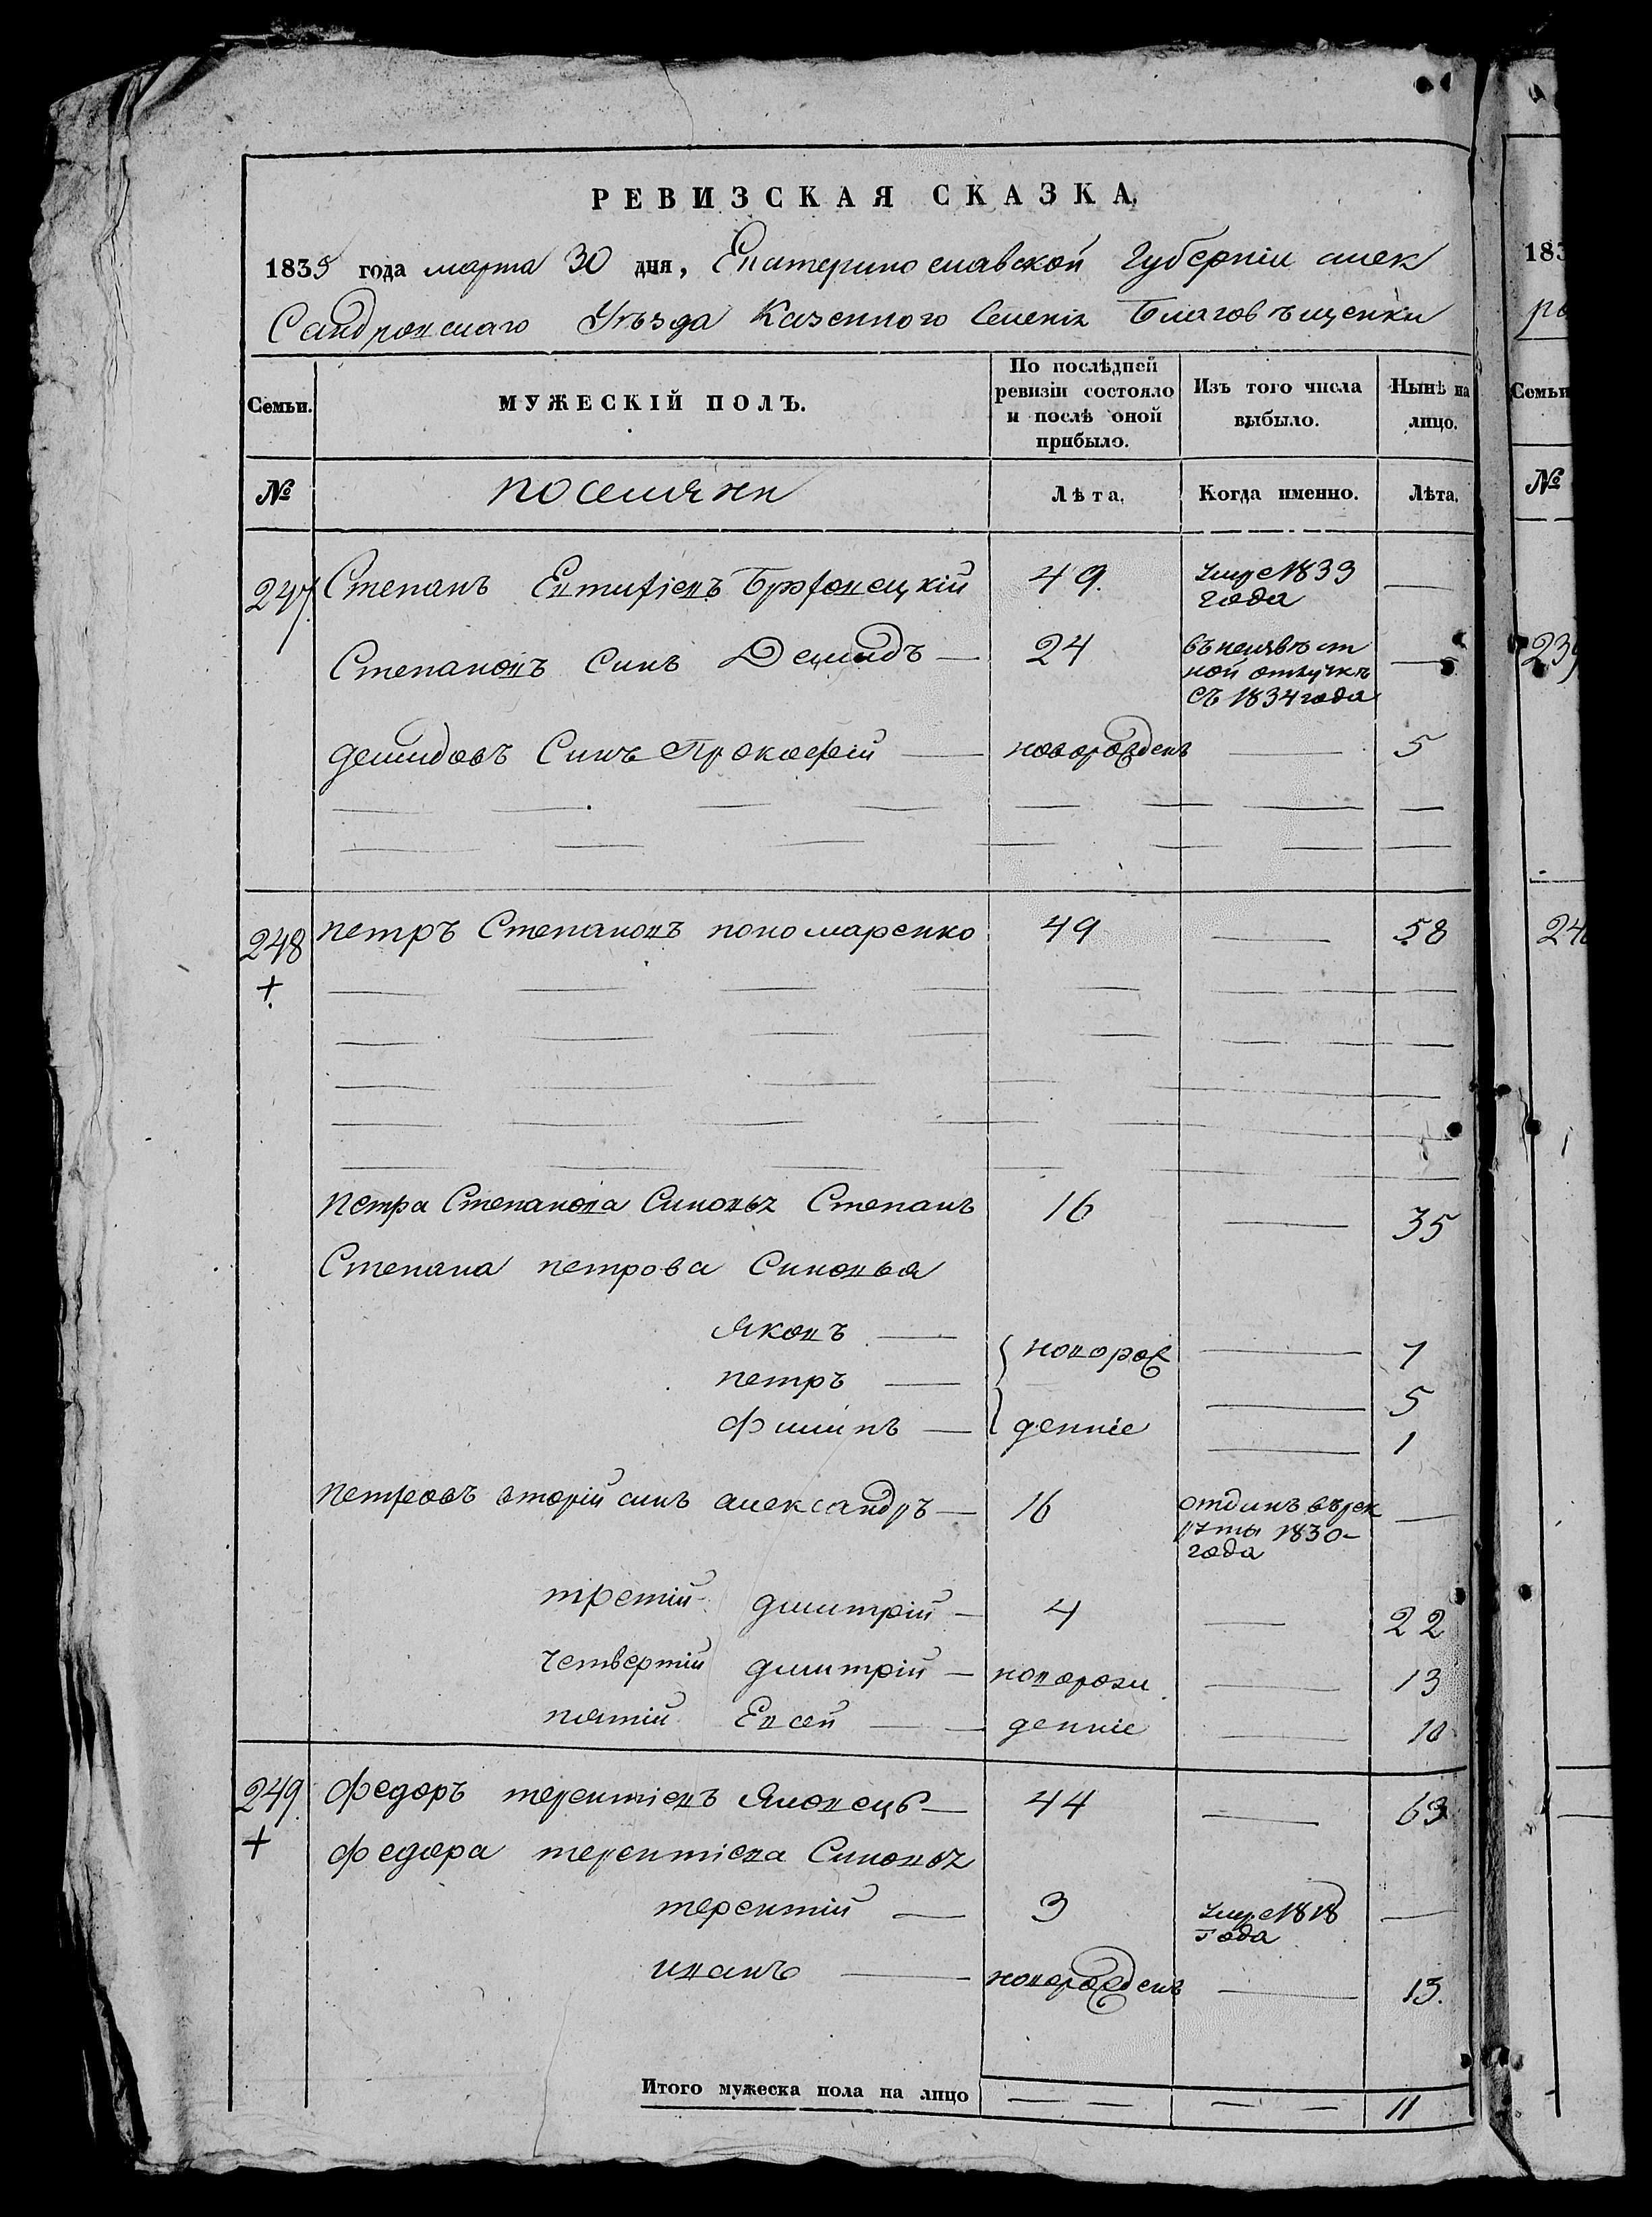 РЕВИЗСКАЯ СКАЗКА,
1835 года марта 30 дня, Екатеринославской Губернiи алек
Сандровскаго Уѣзда Казенного Селенiя Благовѣщенки
Семьи.
МУЖЕСКIЙ ПОЛЪ.
По послѣдней ревизiи состояло и послѣ оной прибыло.
Изъ того числа выбыло.
Нынѣ на лицо.
№ поселяни Лѣта. Когда именно. Лѣта.
247 Степанъ Евтифiевъ 49. умре 1833 года
Степановъ Синъ Демидъ 24 въ неизвѣст
ной отлучкѣ
съ 1834 года
демидовъ Синъ Прокофей новорожденъ 5
248 петръ Степановъ пономаренко 49 58
+
Петра Степанова Синовья Степанъ 16 35
Степана петрова Синовья
яковъ новорож 7
петръ 5
филипъ деннiе 1
петровъ вторiй синъ александръ 16 отданъ въ рек
руты 1830
года
третiй дмитрiй 4 22
четвертiй дмитрiй новорож 13
пятiй Евсей деннiе 10
249 федоръ терентiевъ Яловецъ 44 63
+
федора терентiева Синовья
терентiй 3 умре 1818
года
иванъ новорожденъ 13.
Итого мужеска пола на лицо 11
183
Семьи
№
239
24